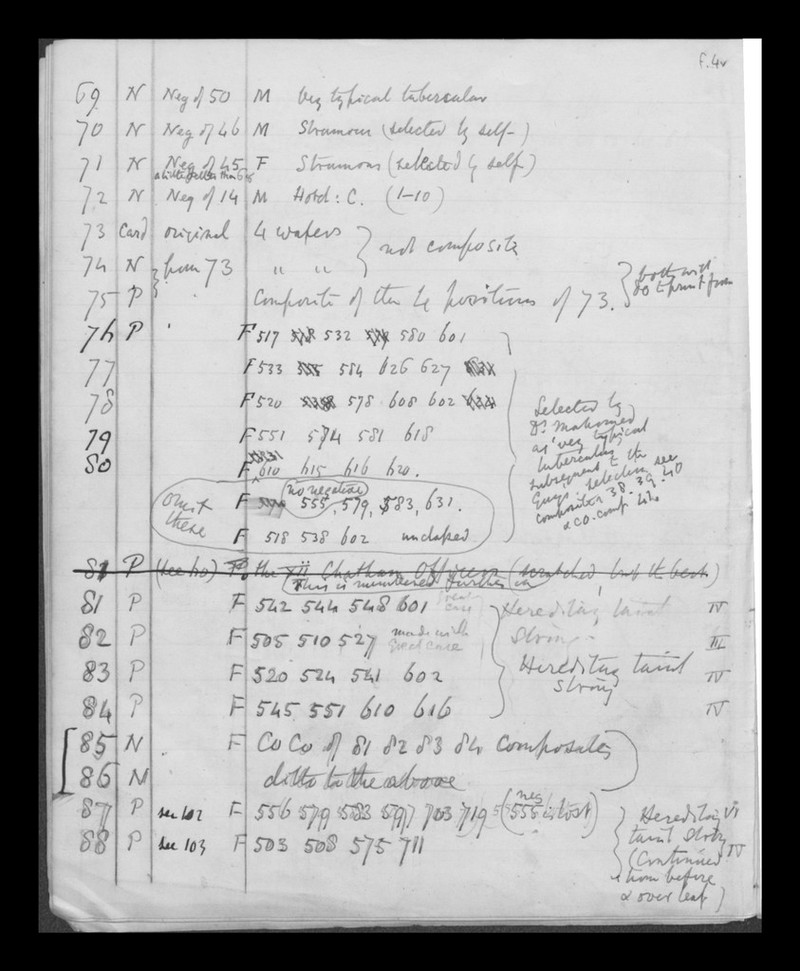 f.4v
69 N Neg of 50 M Very typical tubercular
70 N Neg of 46 M Strumous (selected by self)
71 N Neg of 45 F Strumous (selected by self)
a little smaller than
72 N Neg of 14 M Hosp: C. (1-10)
73 Card original 4 wafers } not composite
74 N } from 73 " "
75 P " Composite of the 4 positions of 73. } both with
to print from
76 P ' F 517 532 580 601
77 F 533 584 626 627
78 F 520 578 608 602
79 F 551 574 581 618
80 F 610 615 616 620.
Selected by
Dr. Mahomed
as 'very typical
tubercular'
subsequent to the
Guys' selection see
composites 38. 39. 40
& co. comp.
omit these
(no negative)
F 555, 579, 583, 631.
F 518 538 602 unclassed
81 P (see 110) the xii Chatham Officers (scratched, but the best)
This is numbered further on
81 P F 542 544 548 601 great case } Hereditary taint IV
82 P F 505 510 527 made with great case Strong III
83 P F 520 524 541 602 Hereditary taint IV
84 P F 545 551 610 616 Strong IV
85 N F Co Co of 81 82 83 84 Composites
86 N ditto to the above
87 P see 102 F 556 579 583 597 703 719 (neg 555 is lost) } Hereditary VI
88 P see 103 F 503 508 575 711 taint Strong IV
(Continued
from before
& over leaf)